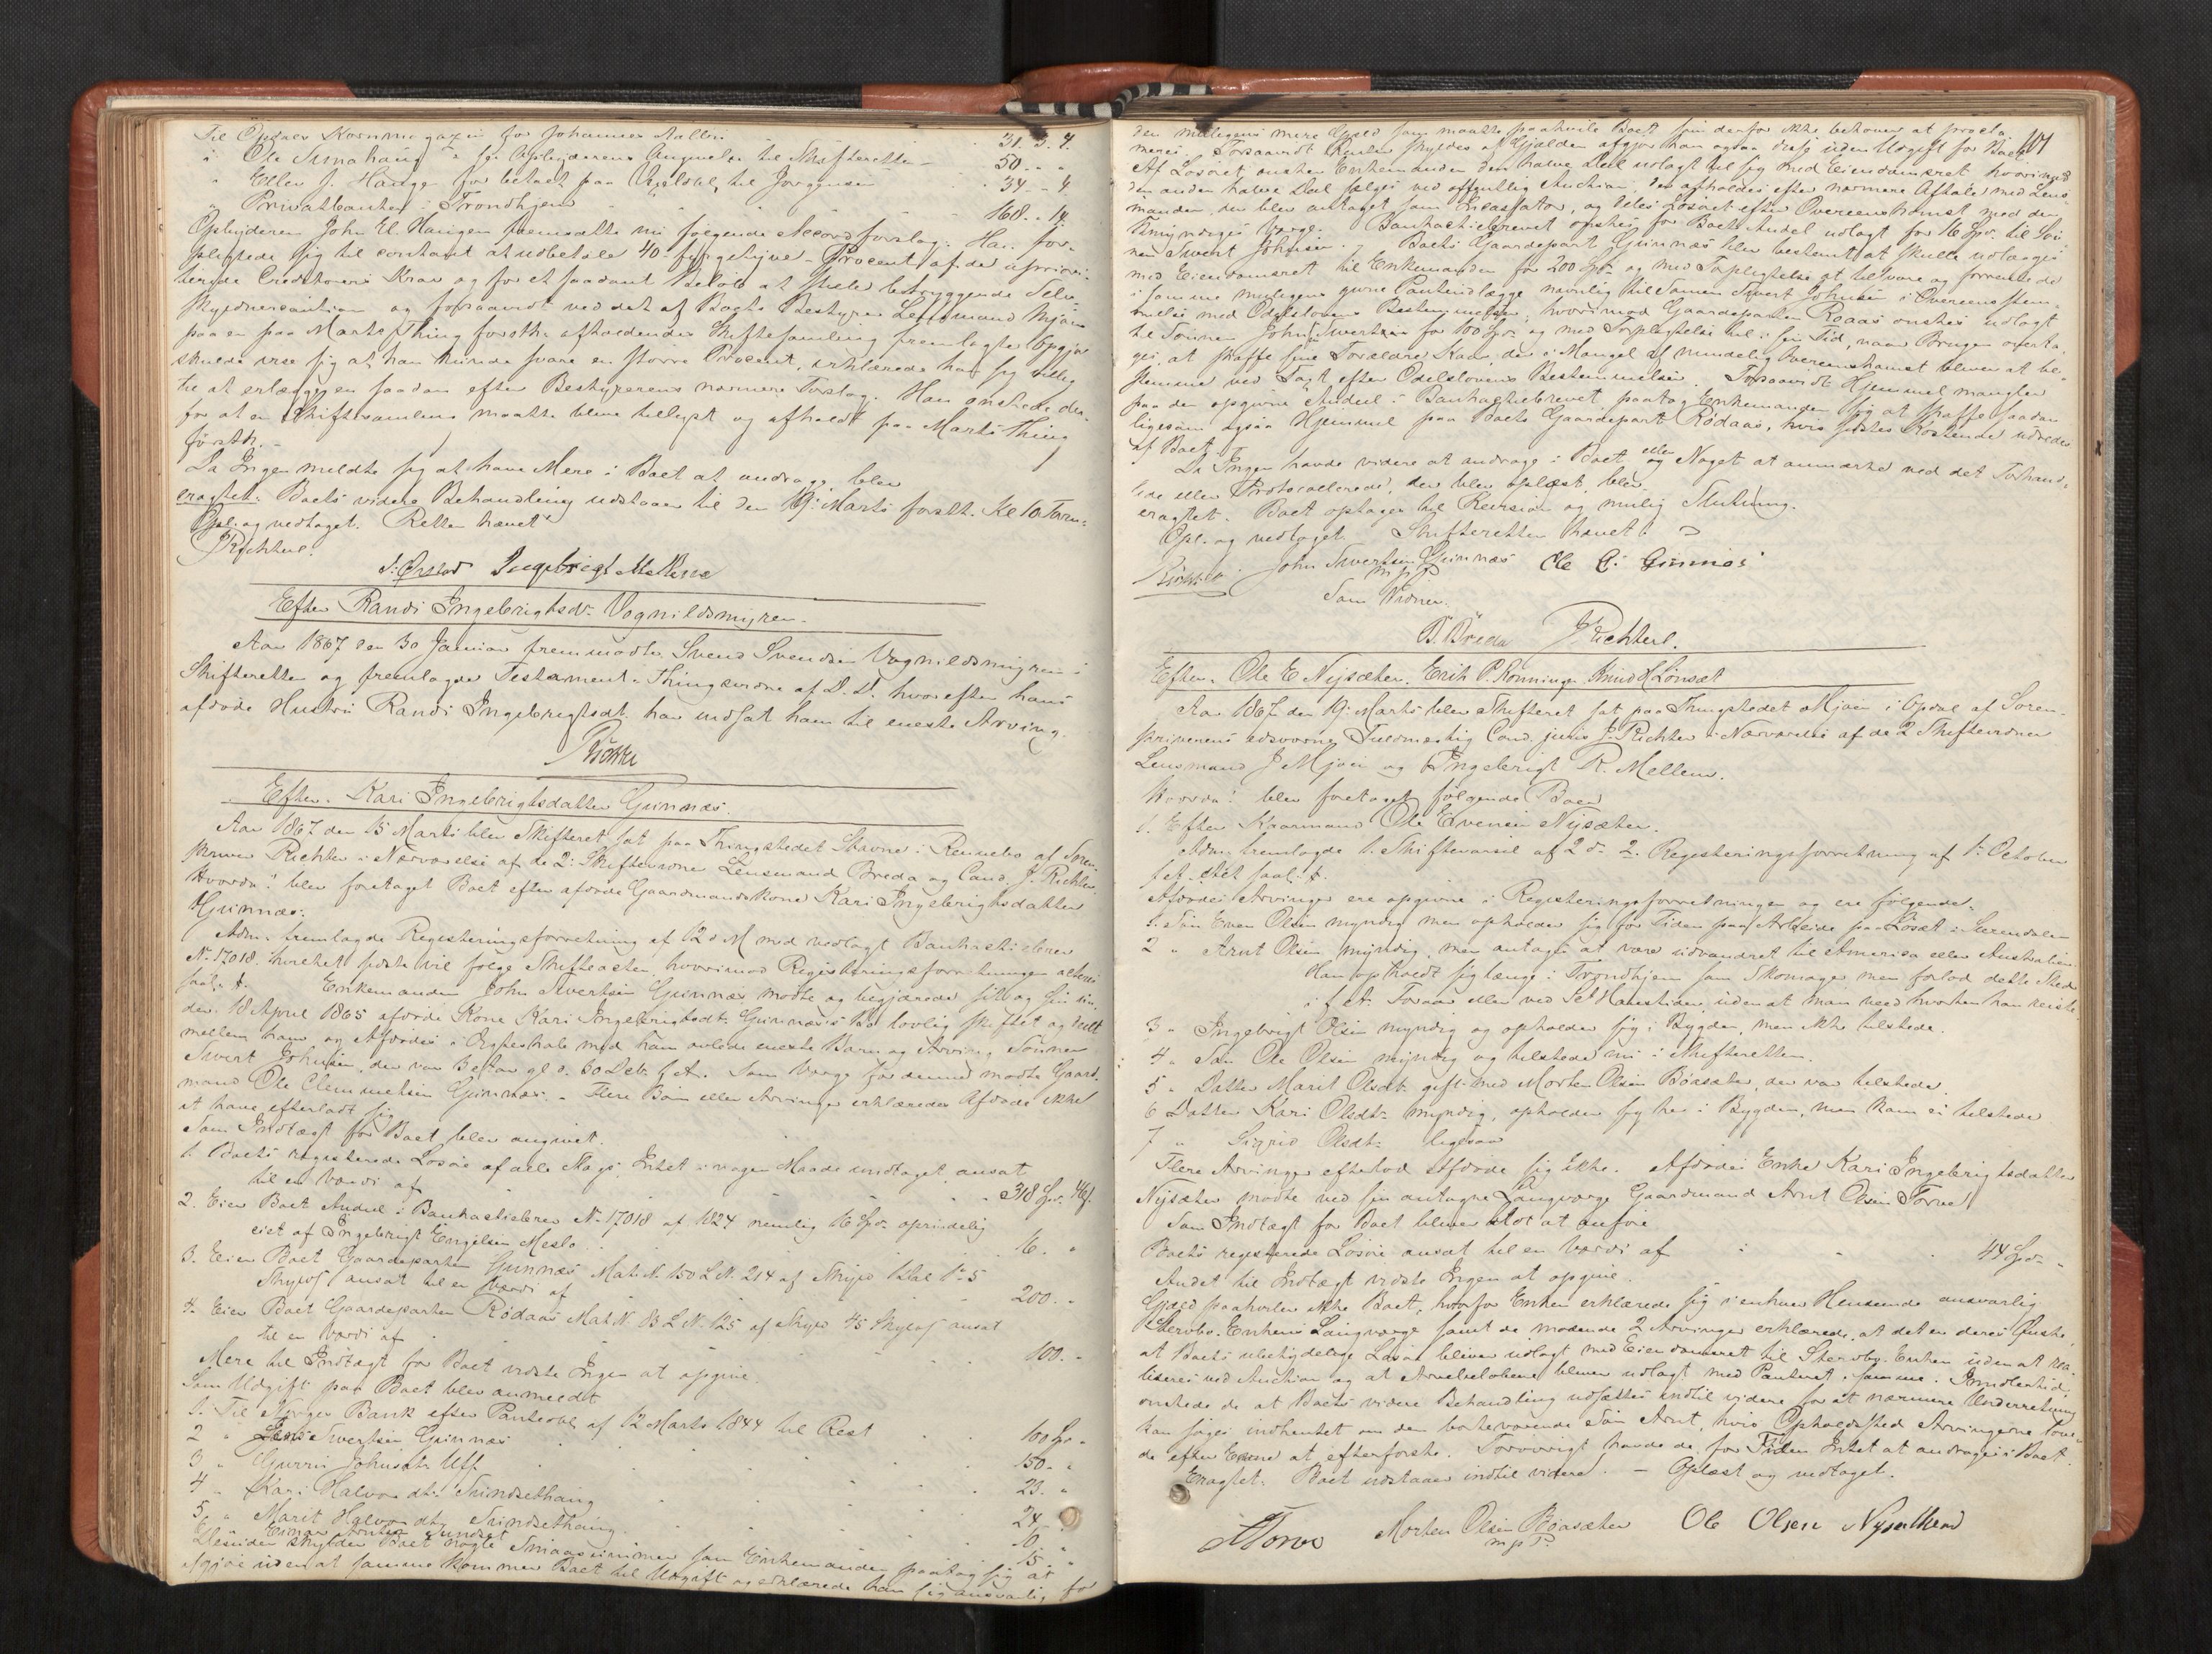 Til Opdals Kornmagazin for Johannes Aalbu 31. 3. 4.
" Ole Simahaug for Opbyderens Angivelse til Skifteretten 50 - -
" Ellev J. Hauge for betalt paa til Jørgensen 34 - 4
" Privatbanken i Trondhjem 168. . 14.
Opbyderen John El. Haugen fremsatte nu følgende Accordforslag: Han for-
pligtede sig til contant at udbetale 40 - fyrgetyve - Procent af de upriori-
terede Creditorers Krav og for et saadant Beløb at stille betryggende Selv-
skyldnercaution og forsaavidt ved det af Boets Bestyrer Lensmand Mjøen
paa en paa Marts Thing førstk. afholdendes Skiftesamling fremlagte Opgjør
skulde vise sig at han kunde svare en større Procent, erklærede han sig villig
til at erlægge en saadan efter Bestyrerens nærmere Forslag. Han ønskede der-
for at en Skiftesamling maatte blive tillyst og afholdt paa Marts Thing
førstk. -
Da Ingen meldte sig at have Mere i Boet at andrage, blev
eragtet: Boets videre Behandling udstaaer til den 19. Marts førstk. Kl. 10 Form.
Opl. og vedtaget. Retten hævet
J Richter.
Ingebrigt Mellem
Efter Randi Ingebrigtsdr. Vognildsmyren.
Aar 1867 den 30 Januar fremmødte Svend Svendsen Vognildsmyren i
Skifteretten og fremlagde Testament. Thingsvidne af D. D. hvorefter hans
afdøde Hustru Randi Ingebrigtsdt. har indsat ham til eneste Arving.
Efter Kari Ingebrigtsdatter Gunnæs.
Aar 1867 den 15 Marts blev Skifteret sat paa Thingstedet Stavne i Rennebo af Soren-
skriver Richter i Nærværelse af de 2: Skiftevidner Lensmand Breda og Cand. J. Richter.
Hvorda! blev foretaget Boet efter afdøde Gaardmandskone Kari Ingebrigtsdatter
Gunnæs:
Adm. fremlagde Registeringsforretning af 12 d M med vedlagt Bankactiebrev
No. 17018. hvilket sidste vil følge Skifteacten, hvorimod Registeringsforretningen alene
saal. t. Enkemanden John Sivertsen Gunnæs mødte og begjærede sit og sin
den 18 April 1865 afdøde Kone Kari Ingebrigtsdt. Gunnæs's Bo lovlig skiftet og deelt
mellem ham og Afdødes i Ægteskab med ham avlede eneste Barn og Arving Sønnen
Sivert Johnsen, der var 3 Aar gl. d. 30 Decb. f. A. Som Værge for denne mødte Gaard-
mand Ole Clemmetsen Gunnæs. - Flere Børn eller Arvinger erklæredes Afdøde ikke
at have efterladt sig
Som Indtægt for Boet blev angivet.
1. Boets registerede Løsøre af alle Slags Intet i nogen Maade undtaget, ansat
til en Værdi af 318 Spd. 46 s.
2. Eier Boet Andeel i Bankactiebrev No. 17018 af 1824 nemlig 16 Spd. oprindelig
eiet af Ingebrigt Engelsen Meslo 16. "
3. Eier Boet Gaardeparten Gunnæs Mat. N. 150 L. N. 214 af Skyld 1 Dal. 1 - 5
Skyll ansat til en Værdi af 200. -
4. Eier Boet Gaardeparten Rødaas Mat N. 83 L. N. 125 af Skyld 45 Skyll ansat
til en Værdi af 100. -
Mere til Indtægt for Boet vidste Ingen at opgive.
Som Udgift paa Boet blev anmeldt
1. Til Norges Bank efter Panteobl. af 12 Marts 1844 til Rest 100 Sp -
2 " Sivertsen Gunnæs 150. "
3 " Gurri Johnsdt. Uff 23. "
4 " Kari Halvorsdt. Sundsethaug 24. "
5. " Marit Halvorsdt. Sundsethaug 10. "
6. Einar Arntsen Sundset 15. "
Desuden skylder Boet nogle Smaasummer som Enkemanden paatog sig at
afgjøre uden at samme kommer Boet til Udgift og erklærede han sig ansvarlig for
101
den muligens mere Gjæld som maatte paahvile Boet som derfor ikke behøver at procla-
meres. Forsaavidt Renter skyldes af Gjælden afgjør han ogsaa disse uden Udgift for Boet
Af Løsøret ønsker Enkemanden den halve Deel udlagt til sig med Eiendomsret hvorimod
den anden halve Deel sælges ved offentlig Auction, der afholdes efter nærmere Aftale med Lens-
manden, der blev antaget som Incassator, og deles Løsøret efter Overeenskomst med den
Umyndiges Værge. Bankactiebrevet ønskes for Boets Andel udlagt for 16 Spd. til Søn-
nen Sivert Johnsen. Boets Gaardepart Gunnæs blev bestemt at skulle udlægges
med Eiendomsret til Enkemanden for 200 Spd. og med Forpligtelse at tilsvare og forrente de
i samme muligens givne Panteudlægge navnlig til Sønnen Sivert Johnsen i Overeensstem-
melse med Odelslovens Bestemmelser, hvorimod Gaardeparten Rødaas ønskes udlagt
til Sønnen John Sivertsen for 100 Spd. og med Forpligtelse til i sin Tid, naar Brugen overta-
ges, at skaffe sine Forældre Kaar, der i Mangel af mindelig Overeenskomst bliver at be-
stemme ved Tagt efter Odelslovens Bestemmelser. Forsaavidt Hjemmel mangler
paa den opgivne Andeel i Bankactiebrevet paatog Enkemanden sig at skaffe saadan
ligesom ogsaa Hjemmel paa Boets Gaardepart Rødaas, hvis sidstes Kostende udredes
af Boet.
Da Ingen havde videre at andrage i Boet eller Noget at anmærke ved det Forhand-
lede eller Protocollerede, der blev oplæst, blev
eragtet. Boet optages til Revision og mulig Slutning.
Opl. og vedtaget. Skifteretten hævet.
John Sivertsen Gunnæs Ole C. Gunnæs
m. p. P.
Som Vidner.
B. Breda J Richter.
Efter. Ole E Nysæter. Erik P. Rønninge. Knud H Lønset
Aar 1867 den 19. Marts blev Skifteret sat paa Thingstedet Mjøen i Opdal af Soren-
skriverens edsvorne Fuldmægtig Cand. juris J. Richter i Nærværelse af de 2 Skiftevidner
Lensmand J Mjøen og Ingebrigt R. Mellem.
Hvorda! blev foretaget følgende Boer
1. Efter Kaarmand Ole Evensen Nysæter.
Adm. fremlagde 1. Skiftevarsel af 2 d. 2. Registeringsforretning af 1. October
f. A. saal. t.
Afdødes Arvinger ere opgivne i Registeringsforretningen og ere følgende.
1. Søn Even Olsen myndig men opholder sig for Tiden paa Arbeide paa Løset i Surendalen
2 " Arnt Olsen myndig, men antages at være udvandret til America eller Australien.
Han opholdt sig længe i Trondhjem som Skomager men forlod dette Sted
i f. A. Foraar eller ved St. Hanstider, uden at man veed hvorhen han reiste.
3 " Ingebrigt Olsen myndig og opholder sig i Bygden, men ikke tilstede.
4 " Søn Ole Olsen myndig og tilstede nu i Skifteretten.
5 " Datter Marit Olsdt. gift med Morten Olsen Bøasæter, der var tilstede
6 Datter Kari Olsdt. myndig, opholder sig her i Bygden, men kom ei tilstede
7 " Sigrid Olsdt. ligesaa
Flere Arvinger efterlod Afdøde sig ikke. Afdødes Enke Kari Ingebrigtsdatter
Nysæter mødte ved sin antagne Laugværge Gaardmand Arnt Olsen Torve
Som Indtægt for Boet bliver blot at anføre
Boets registerede Løsøre ansat til en Værdi af 44 Spd. -
Andet til Indtægt vidste Ingen at opgive.
Gjæld paahviler ikke Boet, hvorfor Enken erklærede sig i enhver Henseende ansvarlig
Stervbo-Enkens Laugværge samt de mødende 2 Arvinger erklærede, at det er deres Ønske,
at Boets ubetydelige Løsøre bliver udlagt med Eiendomsret til Stervbo-Enken uden at rea-
liseres ved Auction og at Arvelodderne bliver udlagt med Panteret i samme. Imidlertid
ønskede de at Boets videre Behandling udsættes indtil videre for at nærmere Underretning
kan søges indhentet om den bortværende Søn Arnt, hvis Opholdssted Arvingerne love-
de efter Evne at efterforske. Forøvrigt havde de for Tiden Intet at andrage i Boet.
Eragtet: Boet udstaaer indtil videre. - Oplæst og vedtaget.
A Torve Morten Olsen Bøasæter Ole Olsen Nysætter
m. p. P.